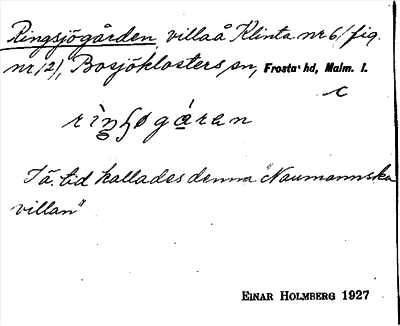 Ringsjögården, villa å Klinta nr 6 (fig.
nr 12), Bosjöklosters sn, Frosta hd, Malm. l.
c
Tä. tid kallades denna "Naumannska
villan"
EINAR HOLMBERG 1927